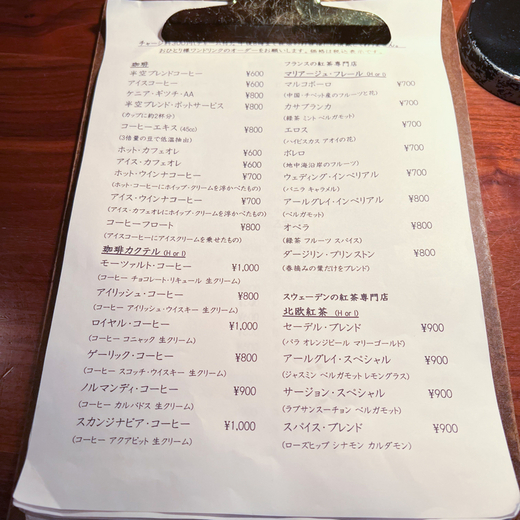 おひとり様ワンドリンクのオーダーをお願いします。
珈琲
半空ブレンドコーヒー ¥600
アイスコーヒー ¥600
ケニア・ギッチ・AA ¥800
半空ブレンド・ポットサービス ¥800
(カップに約2杯分)
コーヒーエキス (45cc) ¥800
(3倍量の豆で低温抽出)
ホット・カフェオレ ¥600
アイス・カフェオレ ¥600
ホット・ウインナコーヒー ¥700
(ホット・コーヒーにホイップ・クリームを浮かべたもの)
アイス・ウインナコーヒー ¥700
(アイス・カフェオレにホイップ・クリームを浮かべたもの)
コーヒーフロート ¥800
(アイスコーヒーにアイスクリームを乗せたもの)
珈琲カクテル (H or I)
モーツァルト・コーヒー ¥1,000
(コーヒー チョコレート・リキュール 生クリーム)
アイリッシュ・コーヒー ¥800
(コーヒー アイリッシュ・ウイスキー 生クリーム)
ロイヤル・コーヒー ¥1,000
(コーヒー コニャック 生クリーム)
ゲーリック・コーヒー ¥800
(コーヒー スコッチ・ウイスキー 生クリーム)
ノルマンディ・コーヒー ¥900
(コーヒー カルバドス 生クリーム)
スカンジナビア・コーヒー ¥1,000
(コーヒー アクアビット 生クリーム)
フランスの紅茶専門店
マリアージュ・フレール (H or I)
マルコポーロ ¥700
(中国・チベット産のフルーツと花)
カサブランカ ¥700
(緑茶 ミント ベルガモット)
エロス ¥700
(ハイビスカス アオイの花)
ボレロ ¥700
(地中海沿岸のフルーツ)
ウェディング・インペリアル ¥700
(バニラ キャラメル)
アールグレイ・インペリアル ¥800
(ベルガモット)
オペラ ¥800
(緑茶 フルーツ スパイス)
ダージリン・プリンストン ¥800
(春摘みの葉だけをブレンド)
スウェーデンの紅茶専門店
北欧紅茶 (H or I)
セーデル・ブレンド ¥900
(バラ オレンジピール マリーゴールド)
アールグレイ・スペシャル ¥900
(ジャスミン ベルガモット レモングラス)
サージョン・スペシャル ¥900
(ラプサンスーチョン ベルガモット)
スパイス・ブレンド ¥900
(ローズヒップ シナモン カルダモン)